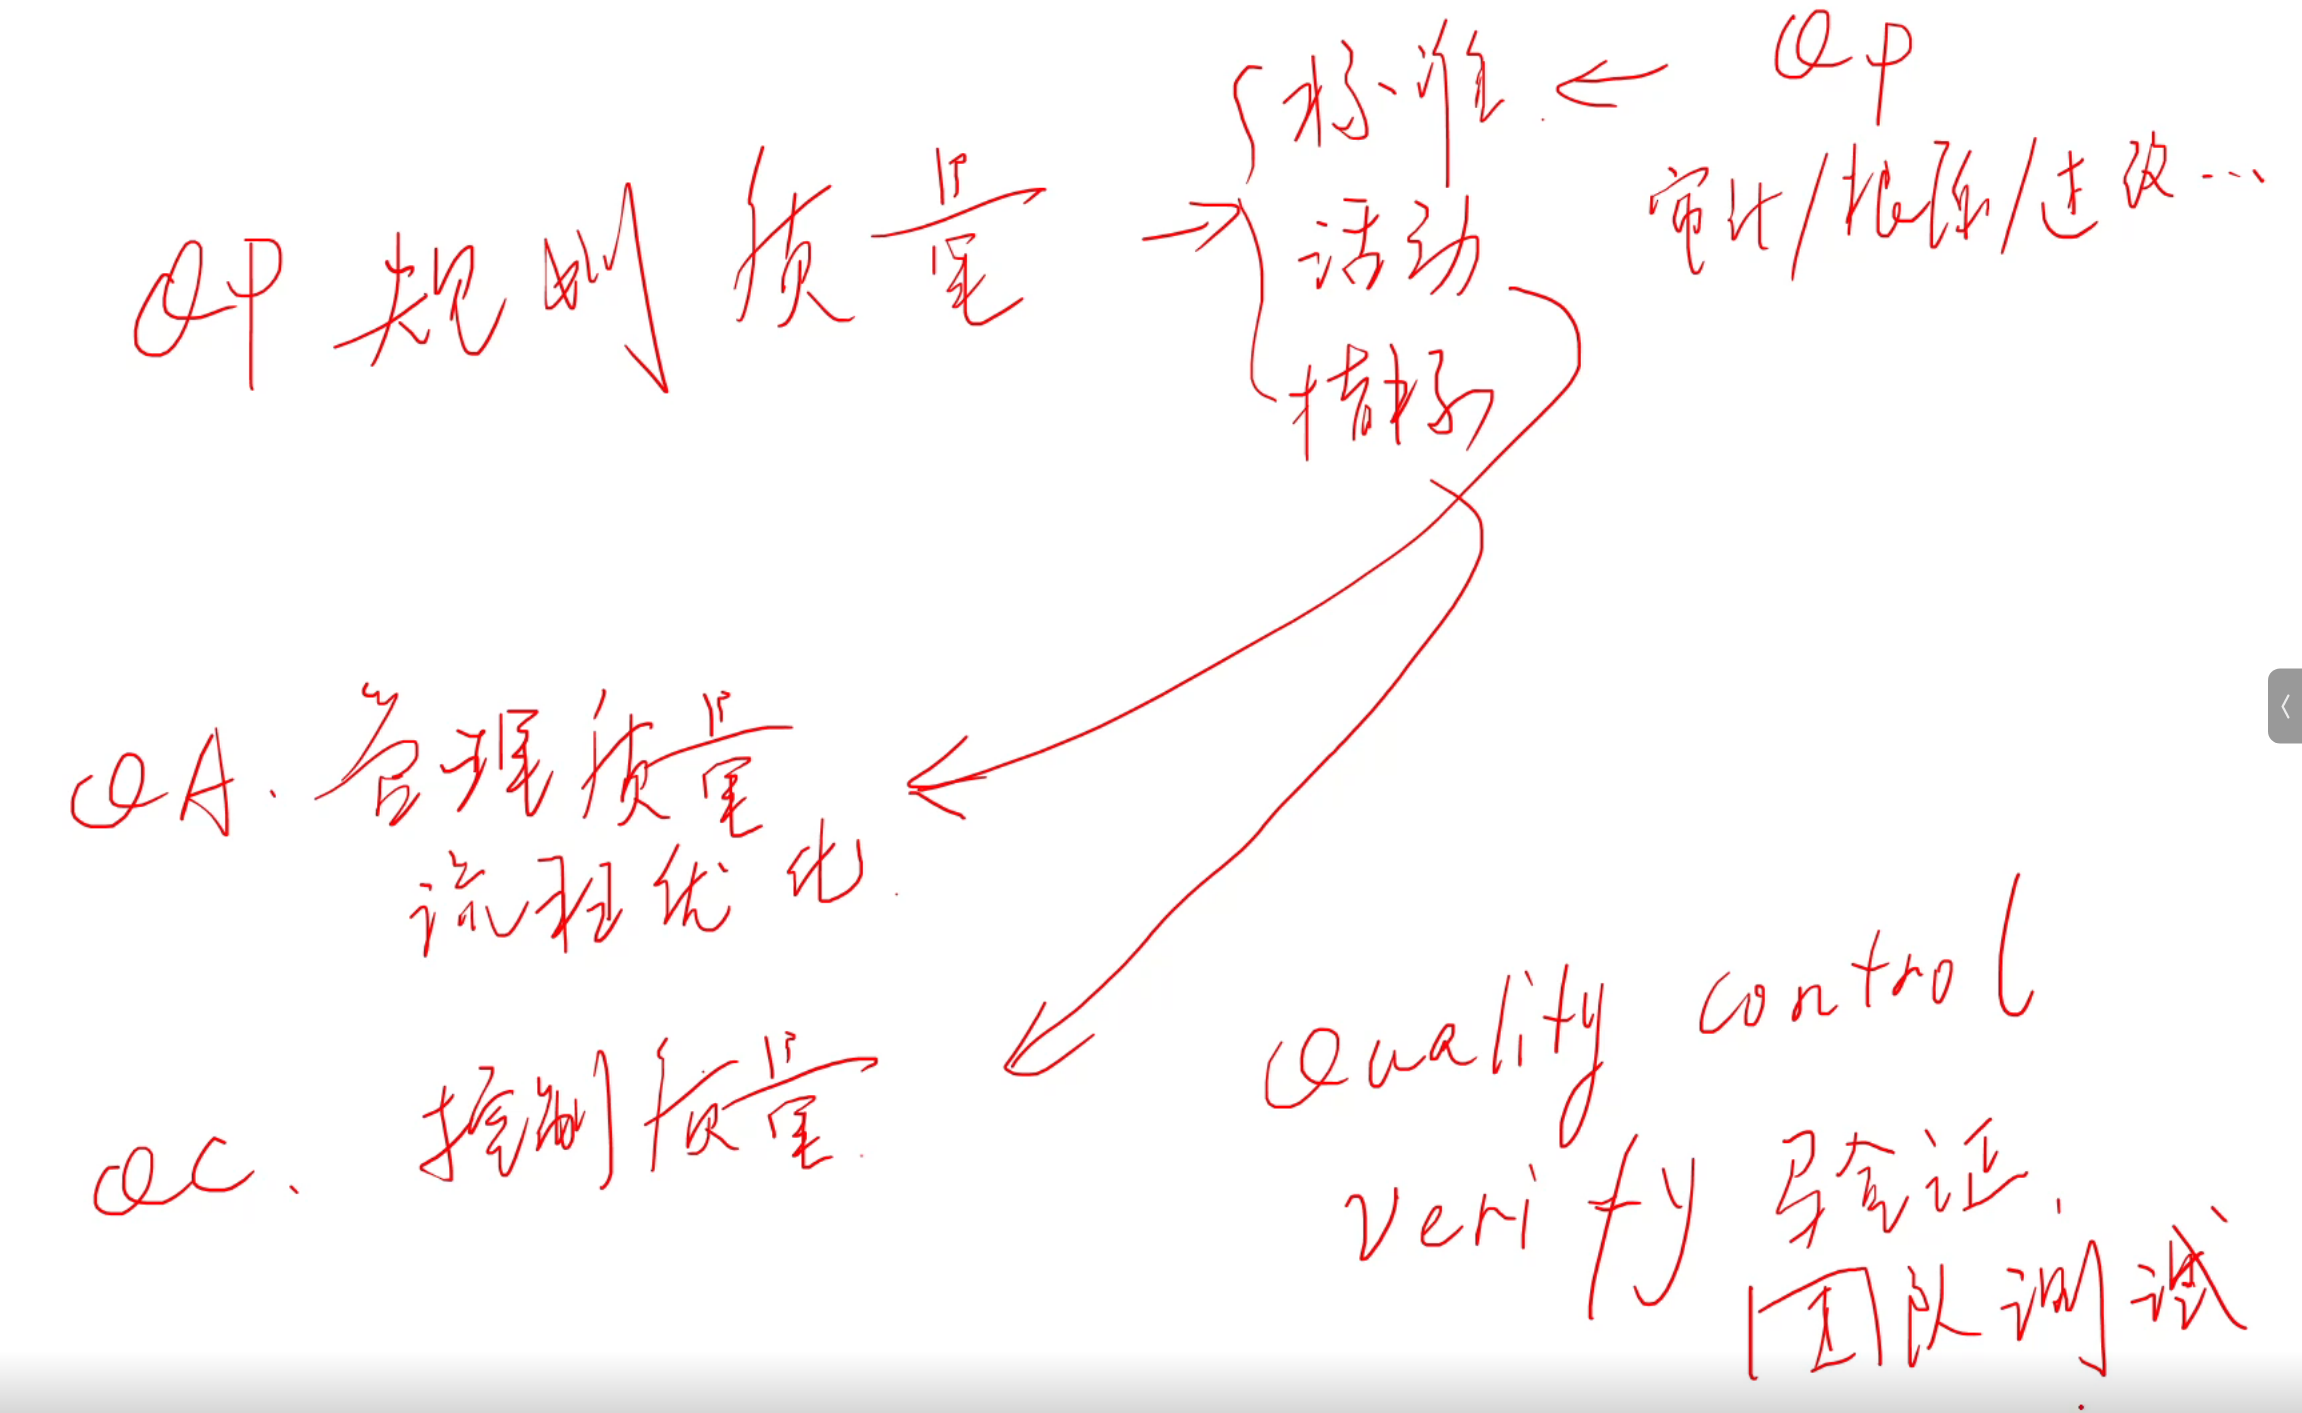 QP 规划质量
标准
QP
活动
审计/根原/过改...
指标
QA. 管理质量
流程优化.
QC. 控制质量.
Quality control
Verify 验证.
团队测试